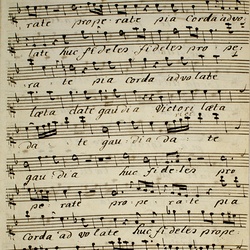 rate prope rate pia Corda advo
late huc fideles fideles pro pe
ra te pia corda advo late
læta date gaudia Victori læta
da te gau dia da te
gau dia huc fi de les pro
pe rate pro pe ra te pia
Corda ad vo late huc fideles prope